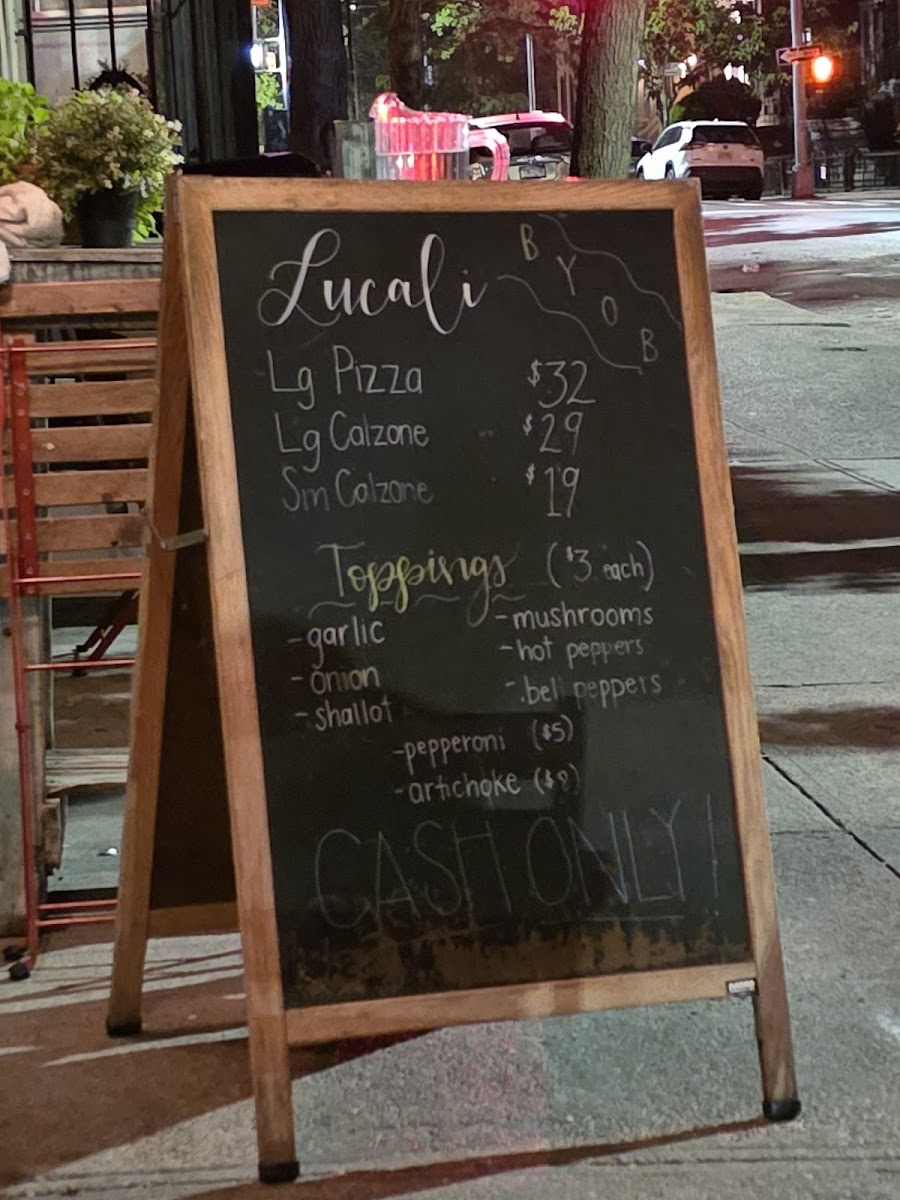 Lucali
B Y O B
Lg Pizza $32
Lg Calzone $29
Sm Calzone $19
Toppings ($3 each)
-garlic
-onion
-shallot
-mushrooms
-hot peppers
-bell peppers
-pepperoni ($5)
-artichoke ($8)
CASH ONLY!